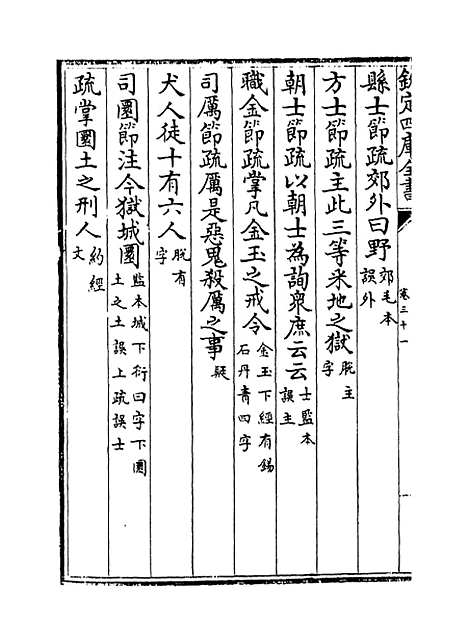 欽定四庫全書
卷三十一
縣士節疏郊外曰野郊毛本
誤外
方士節疏主此三等采地之獄脫主
字
朝士節疏以朝士為詢衆庶云云士監本
誤主
職金節疏掌凡金玉之戒令金玉下經有錫
石丹青四字
司厲節疏厲是惡鬼殺厲之事疑
犬人徒十有六人脫有
字
司圜節注今獄城圜監本城下衍曰字下圜
土之土誤上疏誤士
疏掌圜土之刑人約經
文